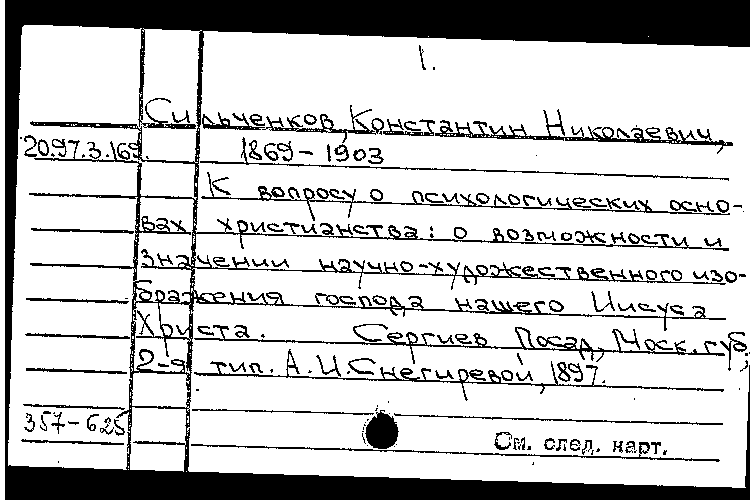 1.
Сильченков, Константин Николаевич,
20.97.3.169. 1869-1903
К вопросу о психологических осно-
вах христианства: о возможности и
значении научно-художественного изо-
бражения господа нашего Иисуса
Христа. Сергиев Посад, Моск. губ.,
2-я тип. А.И.Снегиревой, 1897.
357-625
См. след. карт.